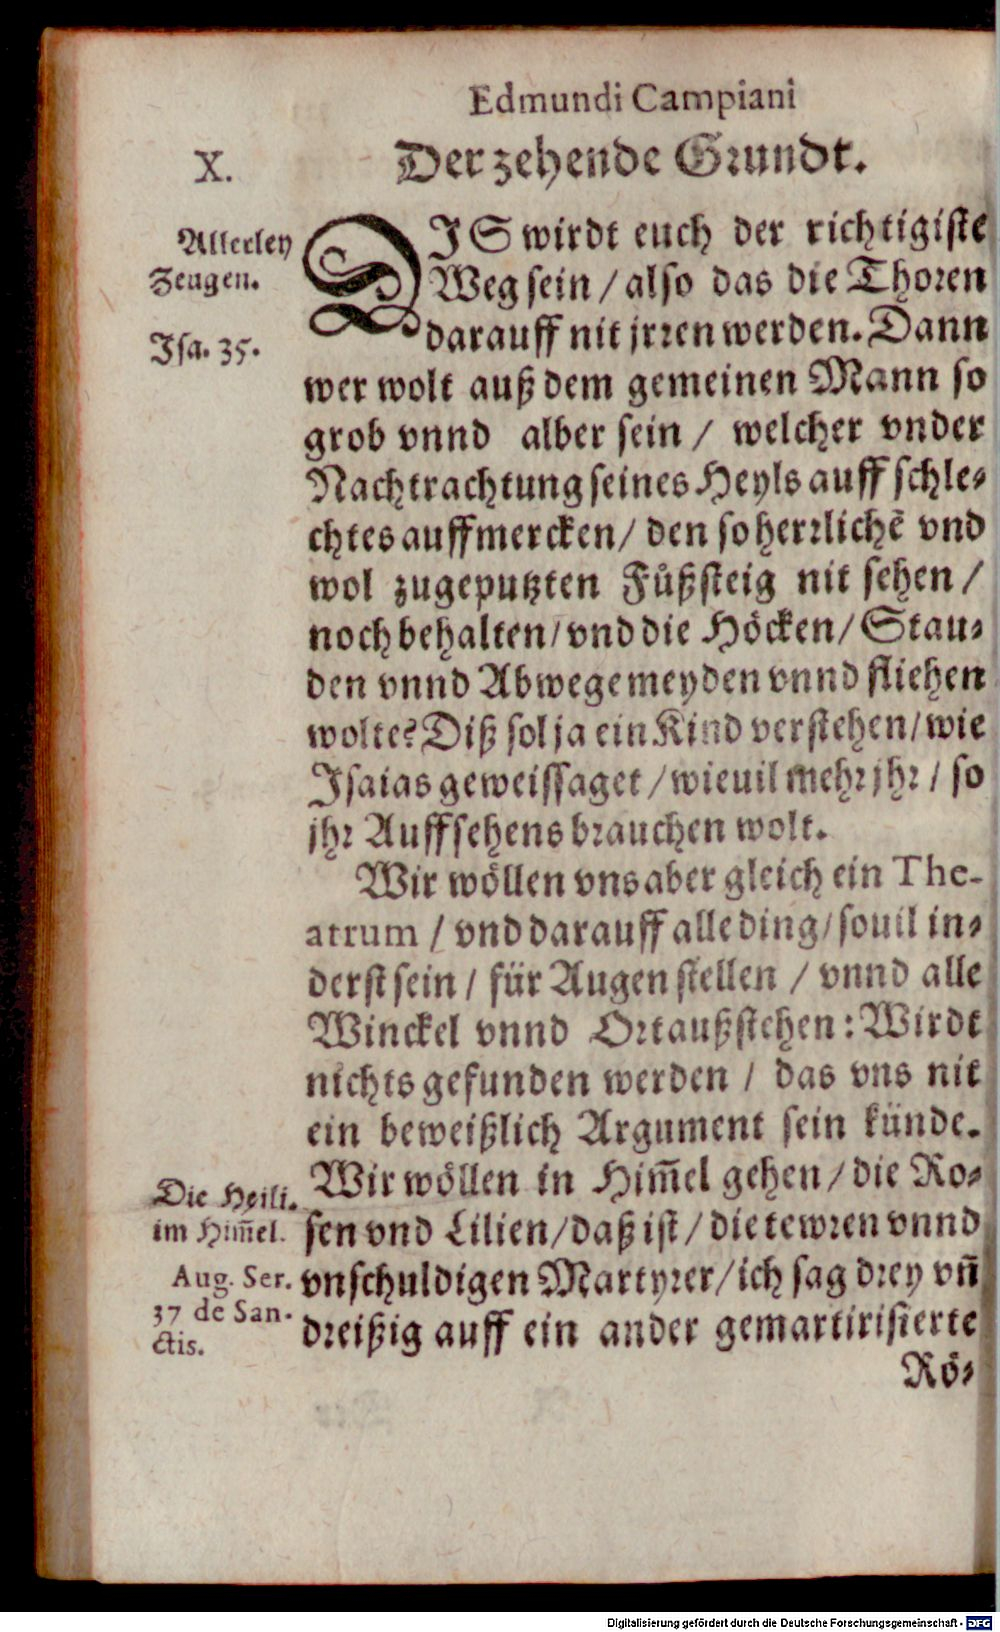 Edmundi Campiani
X.
Der zehende Grundt.
Allerley
Zeugen.
Isa. 35.
DIS wirdt euch der richtigiste
Weg sein / also das die Thoren
darauff nit jrren werden. Dann
wer wolt auß dem gemeinen Mann so
grob vnnd alber sein / welcher vnder
Nachtrachtung seines Heyls auff schle-
chtes auffmercken / den so herrlichē vnd
wol zugeputzten Fůßsteig nit sehen /
noch behalten / vnd die Höcken / Stau-
den vnnd Abwege meyden vnnd fliehen
wolte? Diß sol ja ein Kind verstehen / wie
Isaias geweissaget / wieuil mehr jhr / so
jhr Auffsehens brauchen wolt.
Wir wöllen vns aber gleich ein The-
atrum / vnd darauff alle ding / souil in-
derst sein / für Augen stellen / vnnd alle
Winckel vnnd Ort außstehen: Wirdt
nichts gefunden werden / das vns nit
ein beweißlich Argument sein künde.
Wir wöllen in Him̄el gehen / die Ro-
sen vnd Lilien / daß ist / die tewren vnnd
vnschuldigen Martyrer / ich sag drey vn̄
dreißig auff ein ander gemartirisierte
Die Heili.
im Him̄el.
Aug. Ser.
37 de San-
ctis.
Rö-
Digitalisierung gefördert durch die Deutsche Forschungsgemeinschaft - DFG